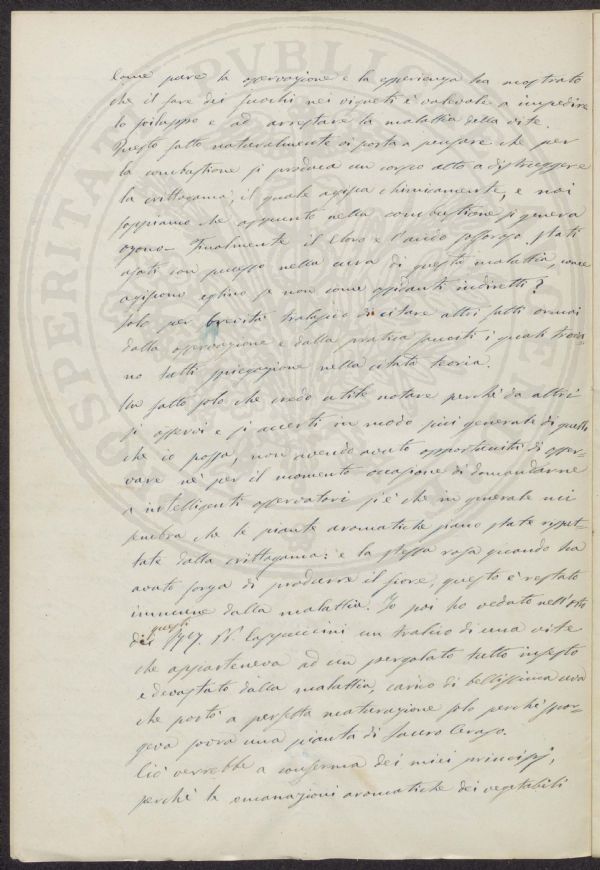 Come pare la osservazione e la esperienza ha mostrato
che il fare dei fuochi nei vigneti è valevole a impedire
lo sviluppo e ad arrestare la malattia della vite.
Questo fatto naturalmente ci porta a pensare che per
la combustione si produca un corpo atto a distruggere
la crittogama, il quale agisca chimicamente, e noi
sappiamo che appunto nella combustione si genera
ozono – Finalmente il Cloro e l'acido solforoso stati
usati con successo nella cura di questa malattia, come
agiscono eglino se non come ossidanti indiretti?
Solo per brevità tralascio di citare altri fatti ormai
dalla osservazione e dalla pratica sanciti i quali trova-
no tutti spiegazione nella citata teoria.
Un fatto solo che credo utile notare perchè da altri
si osservi e si accerti in modo più generale di quello
che io possa, non avendo avuto opportunità di osser-
vare nè per il momento occasione di domandarne
a intelligenti osservatori si è che in generale mi
sembra che le piante aromatiche siano state rispet-
tate dalla crittogama: e la stessa rosa quando ha
avuto forza di produrre il fiore, questo è restato
immune dalla malattia. Io poi ho veduto nell'orto
di questi PP. Cappuccini un tralcio di una vite
che apparteneva ad un pergolato tutto infesto
e devastato dalla malattia, carico di bellissima uva
che portò a perfetta maturazione solo perchè spor-
geva sovra una pianta di Lauro Ceraso.
Ciò verrebbe a conferma dei miei principj,
perchè le emanazioni aromatiche dei vegetabili